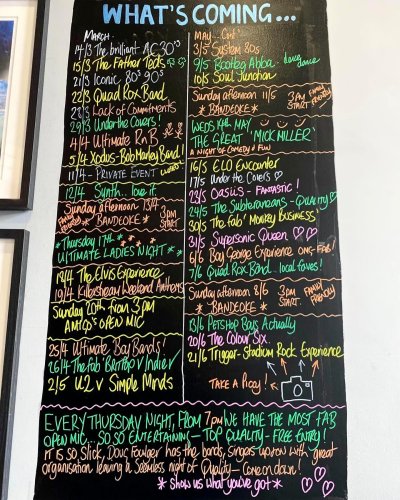 WHAT'S COMING...
MARCH.
14/3 The brilliant AC30's
15/3 The Father Teds
21/3 Iconic 80's 90's
22/3 Quad Rox Band
28/3 Lack of Commitments
29/3 Under the Covers!
4/4 Ultimate RnB
5/4 Xodus-Bob Marley Band!
11/4 - PRIVATE EVENT CLOSED
12/4 Synth... love it
Sunday afternoon 13/4
FAMILY FRIENDLY * BANDEOKE * 3PM START
*Thursday 17th* * * *
ULTIMATE LADIES NIGHT * *
18/4 The Elvis Experience
19/4 Kilbersheam Weekend Anthems
Sunday 20th from 3PM
AMIGO'S OPEN MIC
25/4 Ultimate Boy Bands!
26/4 The fab' BritPop V Indie V
2/5 U2 V Simple Minds
MAY... Cont'
3/5 System 80s
9/5 Bootleg Abba - dance dance
10/5 Soul Junction
Sunday afternoon 11/5 3PM START FAMILY FRIENDLY
* BANDEOKE *
WEDS 14th MAY
THE GREAT 'MICK MILLER'
A NIGHT OF COMEDY & FUN
16/5 ELO Encounter
17/5 Under the Covers
23/5 Oasiis - FANTASTIC!
24/5 The Subterraneans - QUALITY
30/5 The fab' Monkey BUSINESS'
31/5 Supersonic Queen
6/6 Boy George Experience OMG-FAB!
7/6 Quad Rox Band... local faves!
Sunday afternoon 8/6 3PM START FAMILY FRIENDLY
* BANDEOKE *
13/6 Petshop Boys Actually
20/6 The Colour Six
21/6 Trigger-Stadium Rock Experience
TAKE A PICCY!
EVERY THURSDAY NIGHT, FROM 7pm WE HAVE THE MOST FAB
OPEN MIC... SO SO ENTERTAINING - TOP QUALITY - FREE ENTRY!
IT is so Slick, Doug Foulger has the bands, singers up/on with great
organisation leaving a Seamless night of Quality - Come on down!
* Show us what you've got *